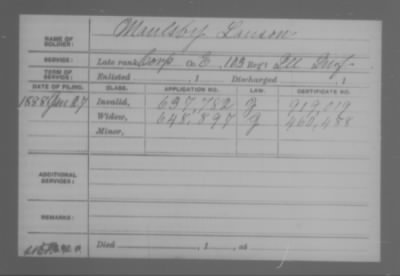 NAME OF SOLDIER: Maulsby Lanson
SERVICE: Late rank Corp Co. E, 103 Reg't Ill Inf.
TERM OF SERVICE: Enlisted , 1 Discharged , 1
DATE OF FILING. CLASS. APPLICATION NO. LAW. CERTIFICATE NO.
1888 Jan 27 Invalid, 637,782 J 919,019
Widow, 648,897 J 460,488
Minor,
ADDITIONAL SERVICES:
REMARKS:
Died , 1 , at